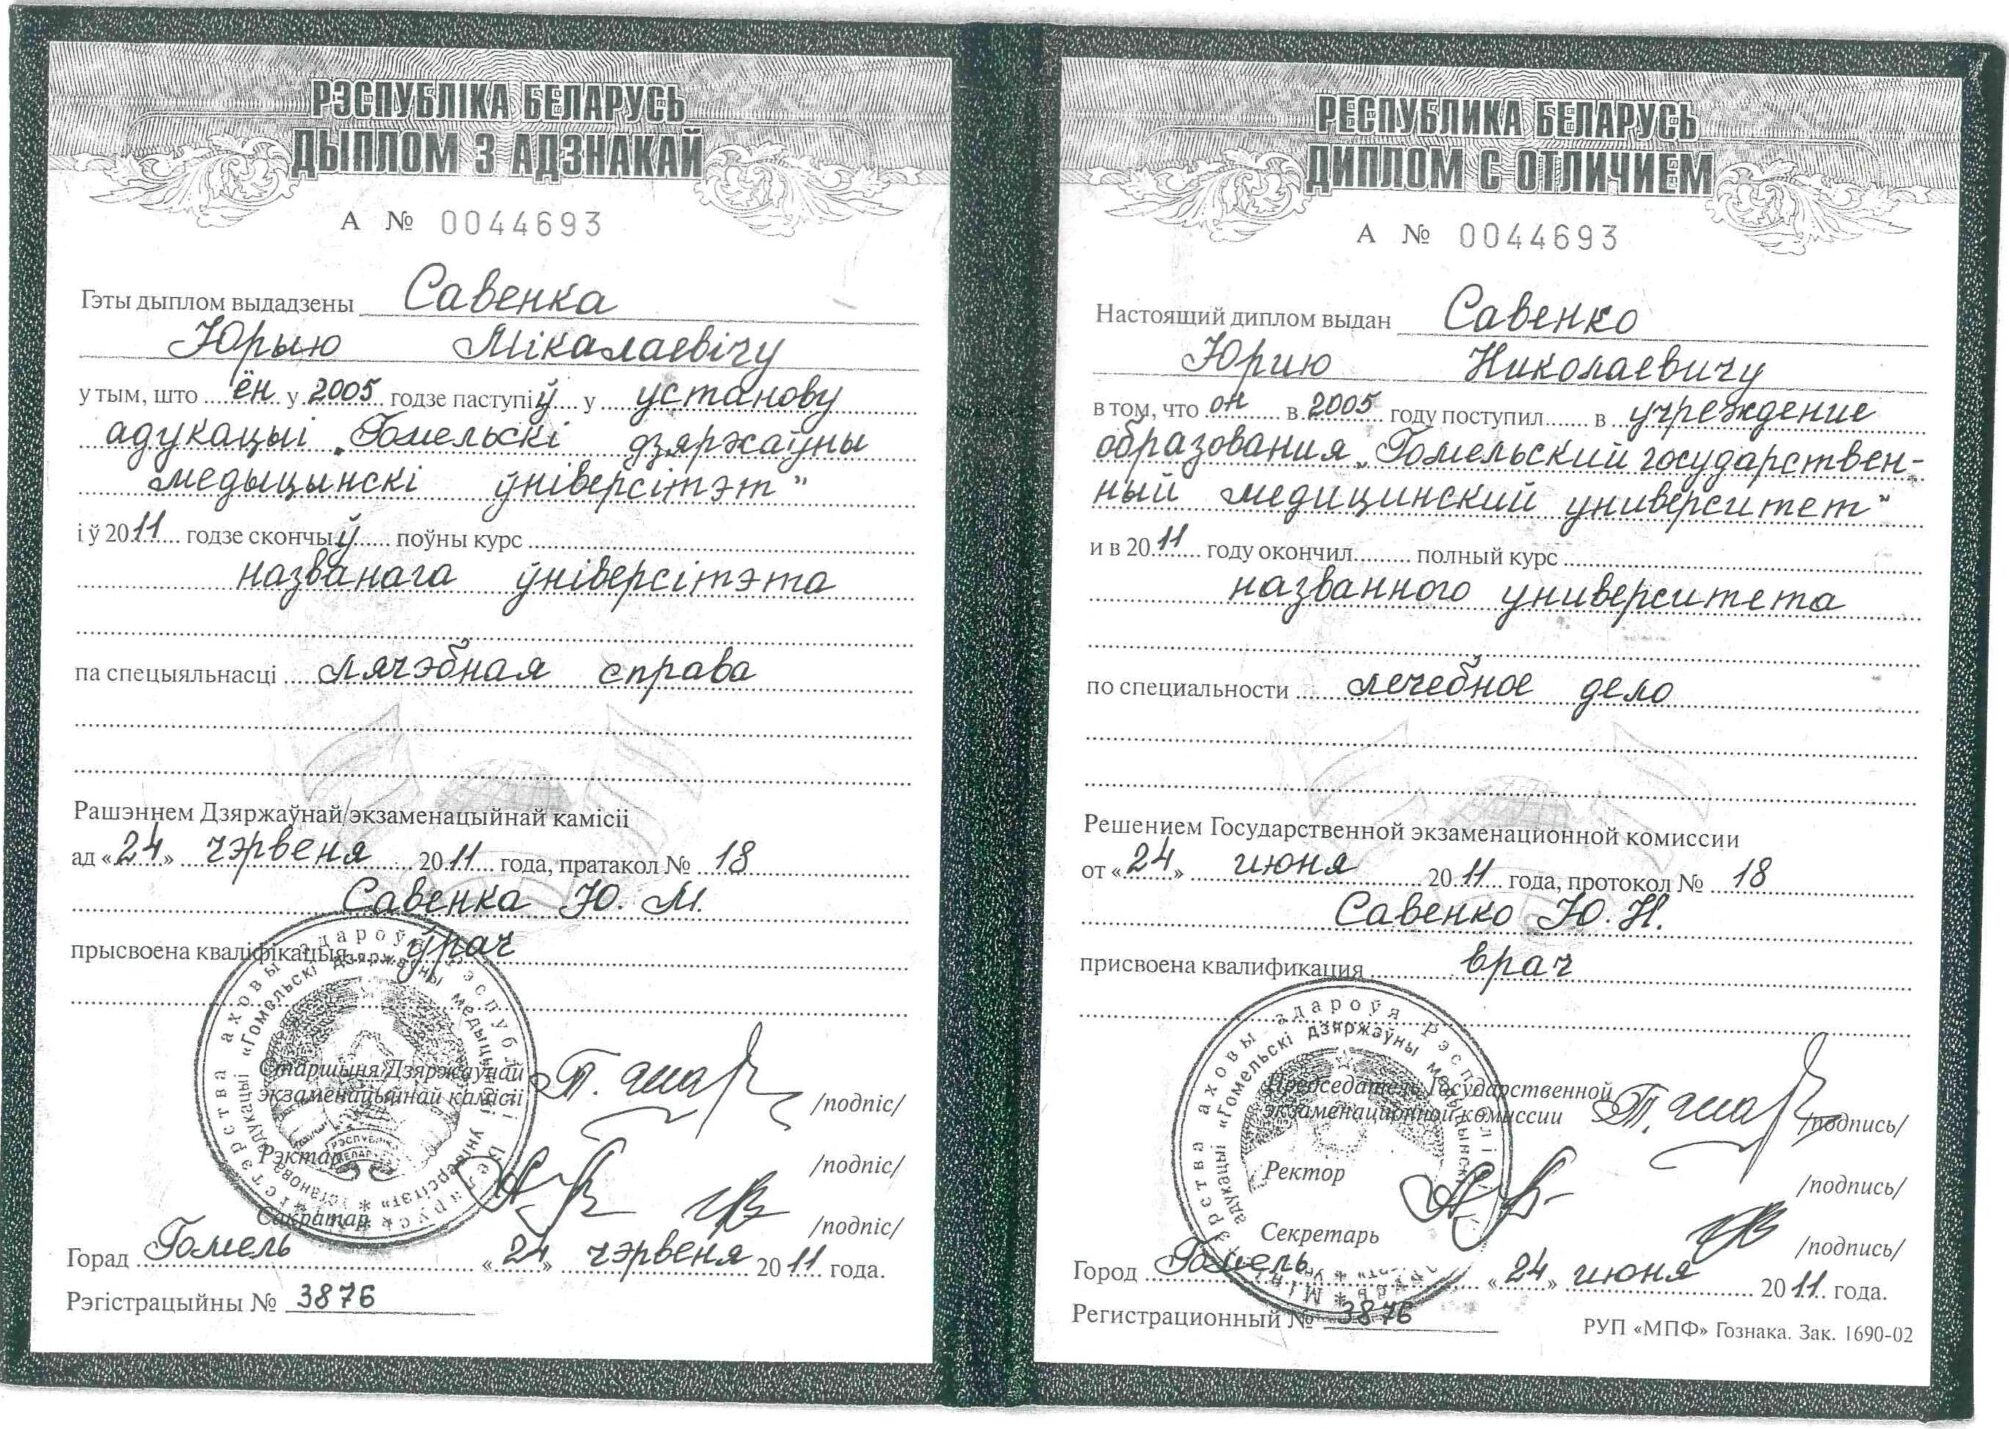 РЭСПУБЛІКА БЕЛАРУСЬ
ДЫПЛОМ З АДЗНАКАЙ
А № 0044693
Гэты дыплом выдадзены Савенка
Юрыю Мікалаевічу
у тым, што ён у 2005 годзе паступіў у установу
адукацыі „Гомельскі дзяржаўны
медыцынскі ўніверсітэт"
і ў 2011 годзе скончыў поўны курс
названага ўніверсітэта
па спецыяльнасці лячэбная справа
Рашэннем Дзяржаўнай экзаменацыйнай камісіі
ад «24» чэрвеня 2011 года, пратакол № 18
Савенка Ю. М.
прысвоена кваліфікацыя ўрач
Старшыня Дзяржаўнай
экзаменацыйнай камісіі /подпіс/
Рэктар /подпіс/
Сакратар /подпіс/
Горад Гомель «24» чэрвеня 2011 года.
Рэгістрацыйны № 3876
РЕСПУБЛИКА БЕЛАРУСЬ
ДИПЛОМ С ОТЛИЧИЕМ
А № 0044693
Настоящий диплом выдан Савенко
Юрию Николаевичу
в том, что он в 2005 году поступил в учреждение
образования „Гомельский государствен-
ный медицинский университет"
и в 2011 году окончил полный курс
названного университета
по специальности лечебное дело
Решением Государственной экзаменационной комиссии
от «24» июня 2011 года, протокол № 18
Савенко Ю. Н.
присвоена квалификация врач
Председатель Государственной
экзаменационной комиссии /подпись/
Ректор /подпись/
Секретарь /подпись/
Город Гомель «24» июня 2011 года.
Регистрационный № 3876
РУП «МПФ» Гознака. Зак. 1690-02